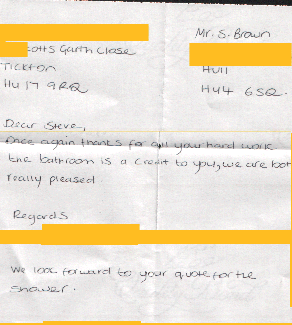 Mr. S. Brown
cotts Garth Close
Tickton
Hull
HU17 9RQ
HU4 6SQ.
Dear Steve,
Once again thanks for all your hard work
the bathroom is a credit to you, we are bot
really pleased
Regards
We look forward to your quote for the
shower.